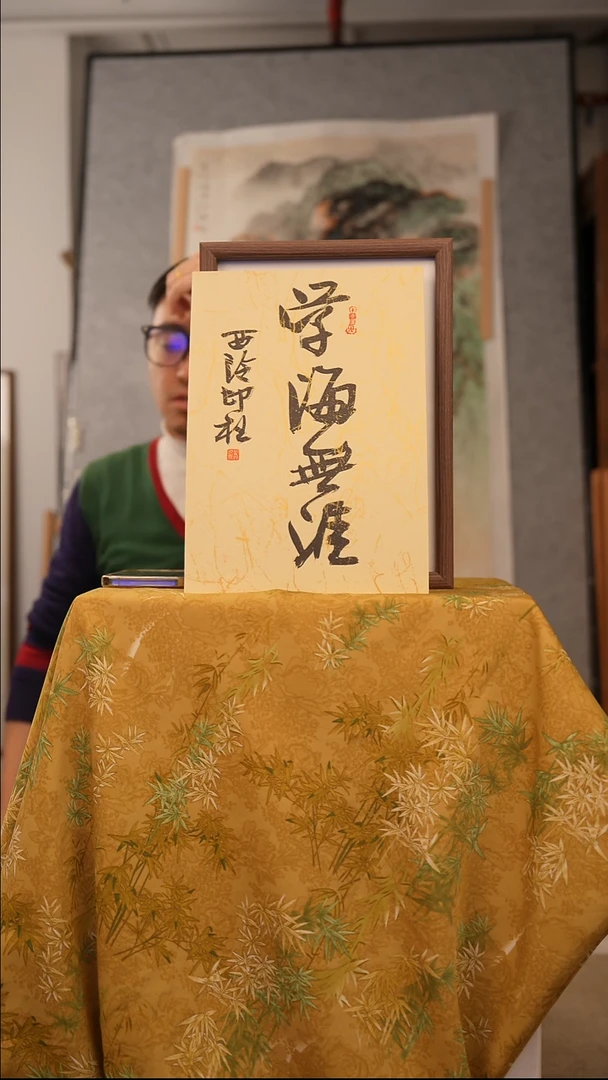 学海無涯
西泠印社